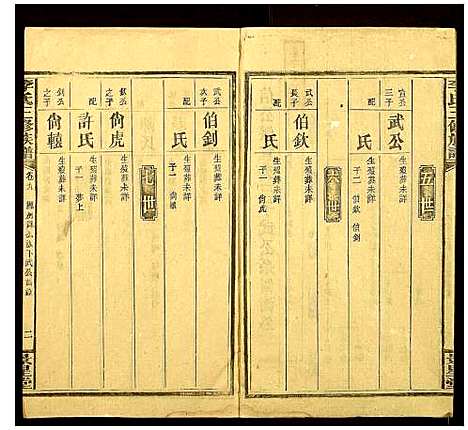 李氏三修族譜
五世
宣公三子
武公
生殁葬未詳
配
氏
生殁葬未詳
子二 伯欽 伯釗
六世
武公長子
伯欽
生殁葬未詳
配
氏
生殁葬未詳
子一 尙虎
武公次子
伯釗
生殁葬未詳
配
氏
生殁葬未詳
子一 尙轅
七世
欽公之子
尙虎
生殁葬未詳
配
許氏
生殁葬未詳
子一 夢上
釗公之子
尙轅
生殁葬未詳
李氏三修族譜
卷九
二